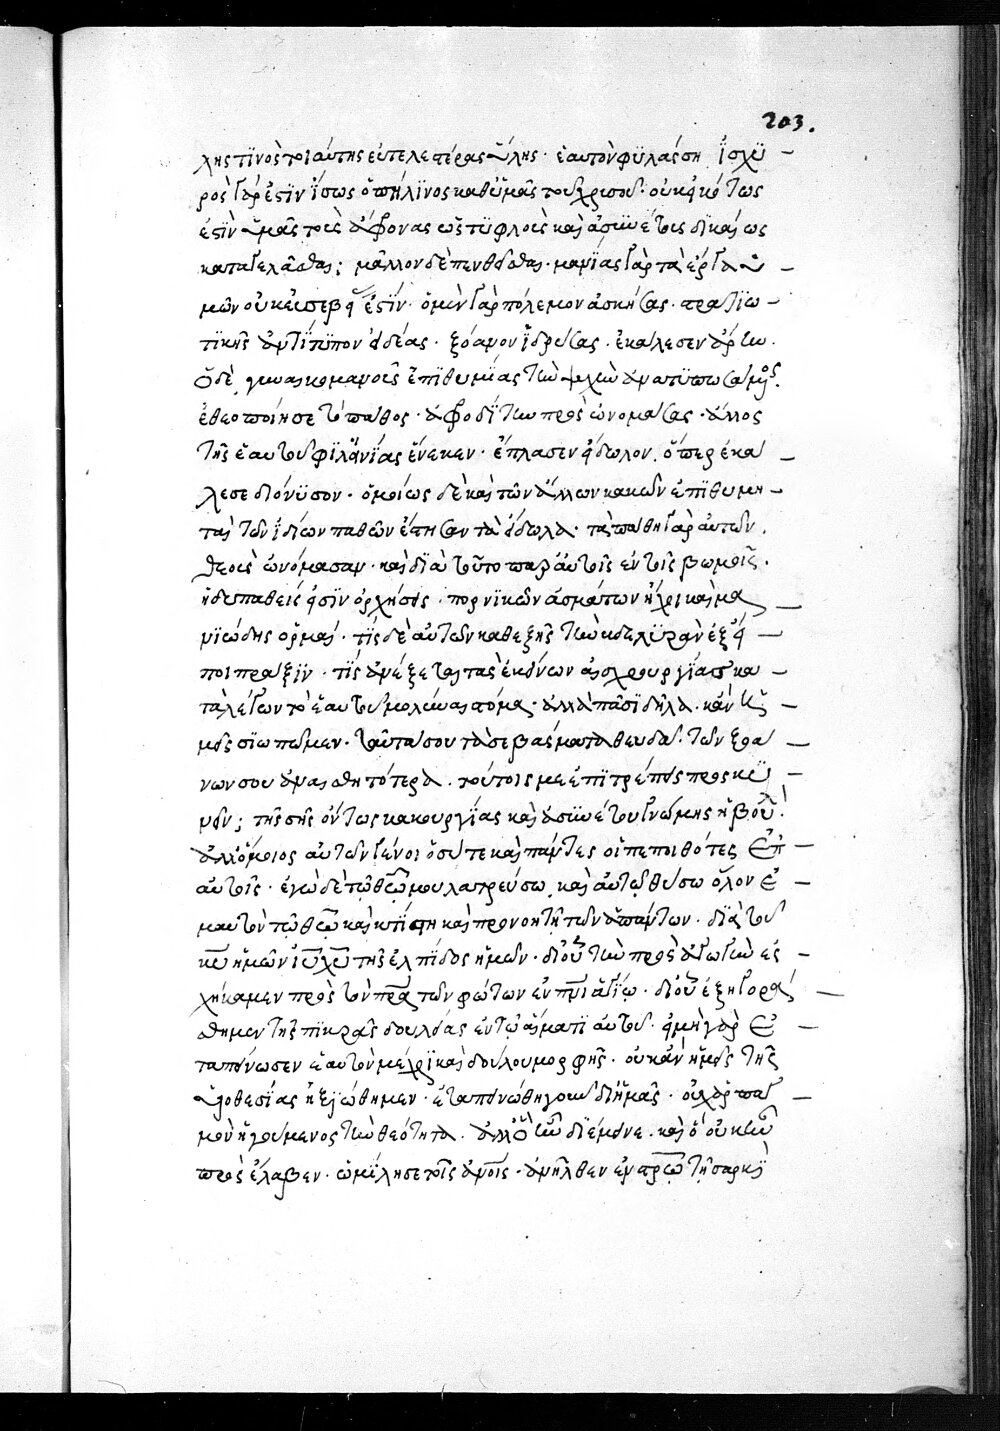 203.
λης τινὸς τοιαύτης εὐτελεστέρας ὕλης· ἑαυτὸν φυλάσση ἰσχυ
ρὸς γάρ ἐστιν ἴσως ὁ πήλινος καθ' ὑμᾶς τοῦ χρυσοῦ· οὐκ εἰκότως
ἐστὶν ὑμᾶς τοὺς ἄφρονας ὡς τυφλοὺς καὶ ἀσυνέτους δικαίως
καταγελᾶσθαι; μᾶλλον δὲ πενθεῖσθαι· μανίας γὰρ τὰ ἔργα ὑ
μῶν οὐκ εὐσεβῆ ἐστίν· ὁ μὲν γὰρ πόλεμον ἀσκήσας· στρατιω
τικῆς ἀντίτυπον ἰδέας· ξόανον ἱδρύσας· ἐκάλεσεν ἄρην.
ὁ δὲ γυναικομανοῦς ἐπιθυμίας τὴν ψυχὴν ἀνατυπωσάμενος.
ἐθεοποίησε τὸ πάθος· ἀφροδίτην προσωνομάσας· ἄλλος
τῆς ἑαυτοῦ φιλοινίας ἕνεκεν· ἔπλασεν εἴδωλον. ὅπερ ἐκά
λεσε διόνυσον· ὁμοίως δὲ καὶ τῶν ἄλλων κακῶν ἐπιθυμη
ταὶ τῶν ἰδίων παθῶν ἔστησαν τὰ εἴδωλα· τὰ πάθη γὰρ αὐτῶν.
θεοὺς ὠνόμασαν· καὶ διὰ τοῦτο παρ' αὐτοῖς ἐν τοῖς βωμοῖς.
ἡδυπαθεῖς εἰσὶν ὀρχήσεις· πορνικῶν ἀσμάτων ἦχοι καὶ μα
νιώδης ὁρμαί· τίς δὲ αὐτῶν καθεξῆς τὴν βδελυρὰν ἐξεί
ποι πρᾶξιν· τίς ἀνέξεται τὰς ἐκείνων αἰσχρουργίας κα
ταλέγων τὸ ἑαυτοῦ μολῦναι στόμα· ἀλλὰ πᾶσι δῆλα· κἂν ἡ
μεῖς σιωπῶμεν· ταῦτά σου τὰ σεβάσματα θευδᾶ· τῶν ξοά
νων σου ἀναισθητότερα. τούτοις με ἐπιτρέπεις προσκυ
νεῖν; τῆς σῆς ὄντως κακουργίας καὶ ἀσυνέτου γνώμης ἡ βουλή
ἀλλ' ὅμοιος αὐτῶν γένοιο σύ τε καὶ πάντες οἱ πεποιθότες ἐπ'
αὐτοῖς· ἐγὼ δὲ τῷ θῶ μου λατρεύσω, καὶ αὐτῷ θύσω ὅλον ἐ
μαυτὸν τῷ θῶ καὶ κτίστῃ καὶ προνοητῇ τῶν ἁπάντων· διὰ τοῦ
κυ ἡμῶν ιυ χυ τῆς ἐλπίδος ἡμῶν· δι' οὗ τὴν προσαγωγὴν ἐσ
χήκαμεν πρὸς τὸν πρα τῶν φώτων ἐν πνι ἁγίῳ· δι' οὗ ἐξηγορά
σθημεν τῆς πικρᾶς δουλείας ἐν τῷ αἵματι αὐτοῦ· εἰ μὴ γὰρ ἐ
ταπείνωσεν ἑαυτὸν μέχρι καὶ δούλου μορφῆς· οὐκ ἂν ἡμεῖς τῆς
υἱοθεσίας ἠξιώθημεν· ἐταπεινώθη γοῦν δι' ἡμᾶς· οὐχ ἁρπαγ
μὸν ἡγούμενος τὴν θεότητα. ἀλλ' ὃ ἦν διέμεινε· καὶ ὃ οὐκ ἦν
προσέλαβεν· ὡμίλησε τοῖς ἀνοις· ἀνῆλθεν ἐν στρῶ τῇ σαρκὶ